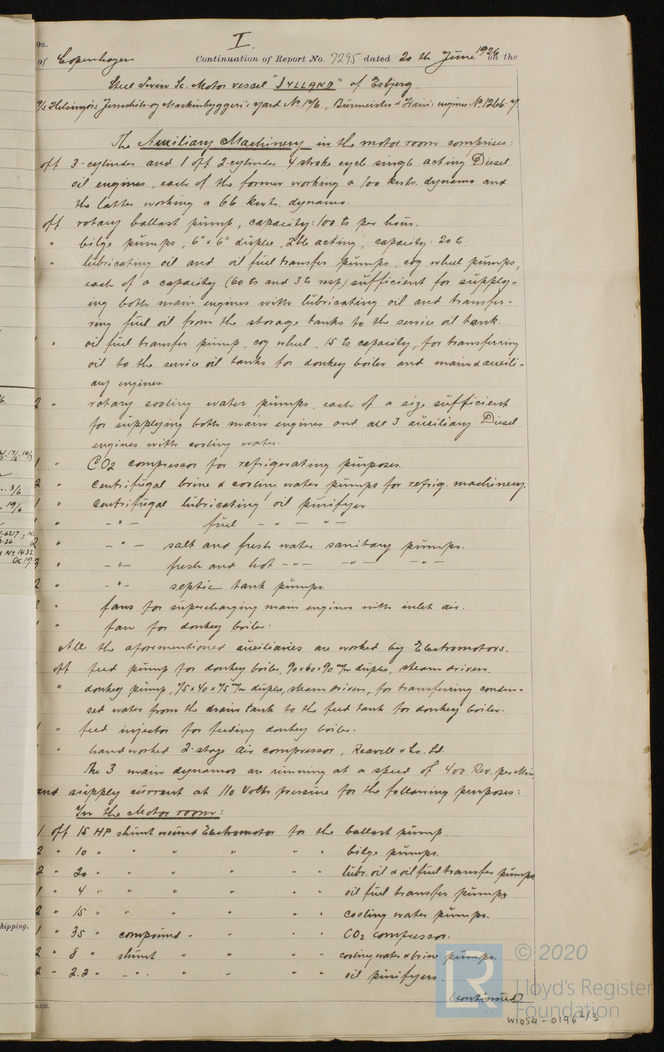 I.
Copenhagen Continuation of Report No. 7295 dated 20th June 1926 on the
Steel Twin Sc. Motor vessel "JYLLAND" of Esbjerg
Helsingörs Jernskibs- og Maskinbyggeri's yard No 146, Burmeister & Wain's engines No 1266
The Auxiliary Machinery in the motor room comprises:
off 3-cylinder and 1 off 2-cylinder 4 stroke cycle single acting Diesel
oil engines, each of the former working a 100 kwts. dynamo and
the latter working a 66 kwts. dynamo.
off rotary ballast pump, capacity: 100 ts per hour.
" bilge pumps, 6" x 6" duplex, dble acting, capacity: 20 ts
" lubricating oil and oil fuel transfer pumps, cog wheel pumps,
each of a capacity (60 ts and 3 ts resp) sufficient for supply-
ing both main engines with lubricating oil and transfer-
ring fuel oil from the storage tanks to the service oil tank.
" oil fuel transfer pump, cog wheel, 15 ts capacity, for transferring
oil to the service oil tanks for donkey boiler and main & auxili-
ary engines
2 " rotary cooling water pumps, each of a size sufficient
for supplying both main engines and all 3 auxiliary Diesel
engines with cooling water.
1 " CO2 compressor for refrigerating purposes.
2 " centrifugal brine & cooling water pumps for refrig. machinery.
1 " centrifugal lubricating oil purifyer
1 " - " - fuel - " - - " -
2 " - " - salt and fresh water sanitary pumps.
3 " - " - fresh and hot - " - - " - - " -
2 " - " - septic tank pumps.
2 " fans for supercharging main engines with inlet air.
" fan for donkey boiler.
All the aforementioned auxiliaries are worked by Electromotors.
off feed pump for donkey boiler, 90 x 60 x 90 m/m duplex, steam driven.
" donkey pump, 75 x 40 x 75 m/m duplex, steam driven, for transferring conden-
sed water from the drain tank to the feed tank for donkey boiler.
1 " feed injector for feeding donkey boiler.
" handworked 2-stage air compressor, Reavell & Co. Ld.
The 3 main dynamos are running at a speed of 400 Rev. per Min
and supply current at 110 Volts pressure for the following purposes:
In the Motor room:
1 off 15 HP shunt wound Electromotor for the ballast pump.
2 " 10 " " " " " " bilge pumps.
2 " 20 " " " " " " lubr. oil & oil fuel transfer pumps
1 " 4 " " " " " " oil fuel transfer pumps
2 " 15 " " " " " " cooling water pumps.
1 " 35 " compound " " " " CO2 compressor.
2 " 8 " shunt " " " " cooling water & brine pumps.
2 " 2.2 " - " - " " " " oil purifyers.
(continued)
© 2020
LR
Lloyd's Register
Foundation
W1054-0196 2/3